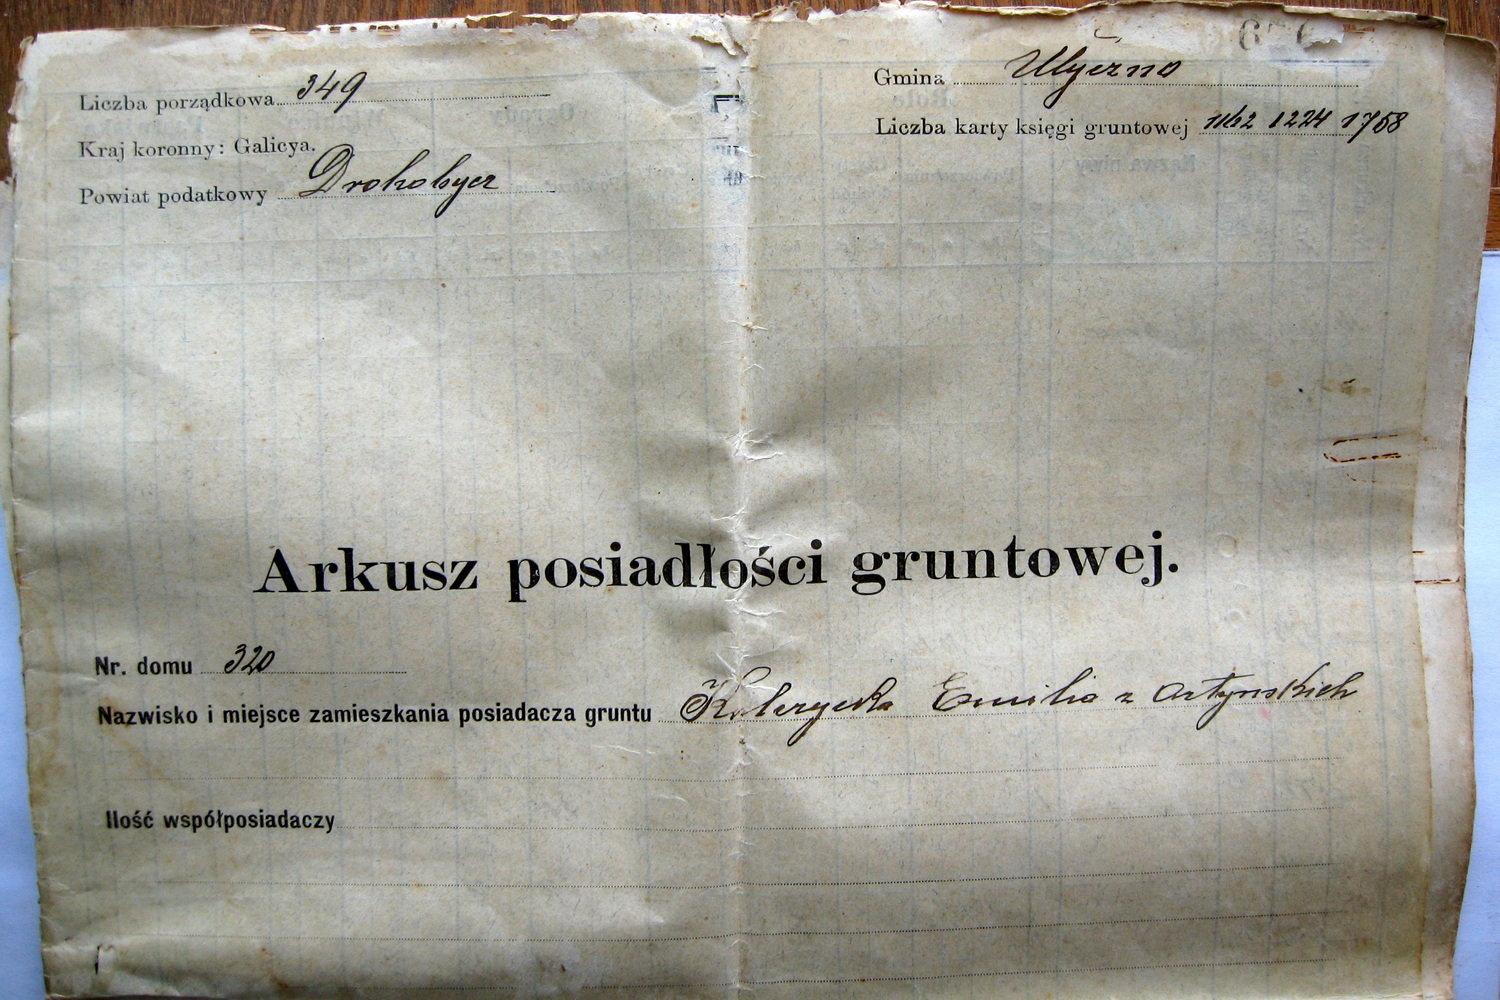 Liczba porządkowa 349
Kraj koronny: Galicya.
Powiat podatkowy Drohobycz
Gmina Ulyczno
Liczba karty księgi gruntowej 1162 1224 1768
Arkusz posiadłości gruntowej.
Nr. domu 320
Nazwisko i miejsce zamieszkania posiadacza gruntu Emilia z Artyńskich
Ilość współposiadaczy